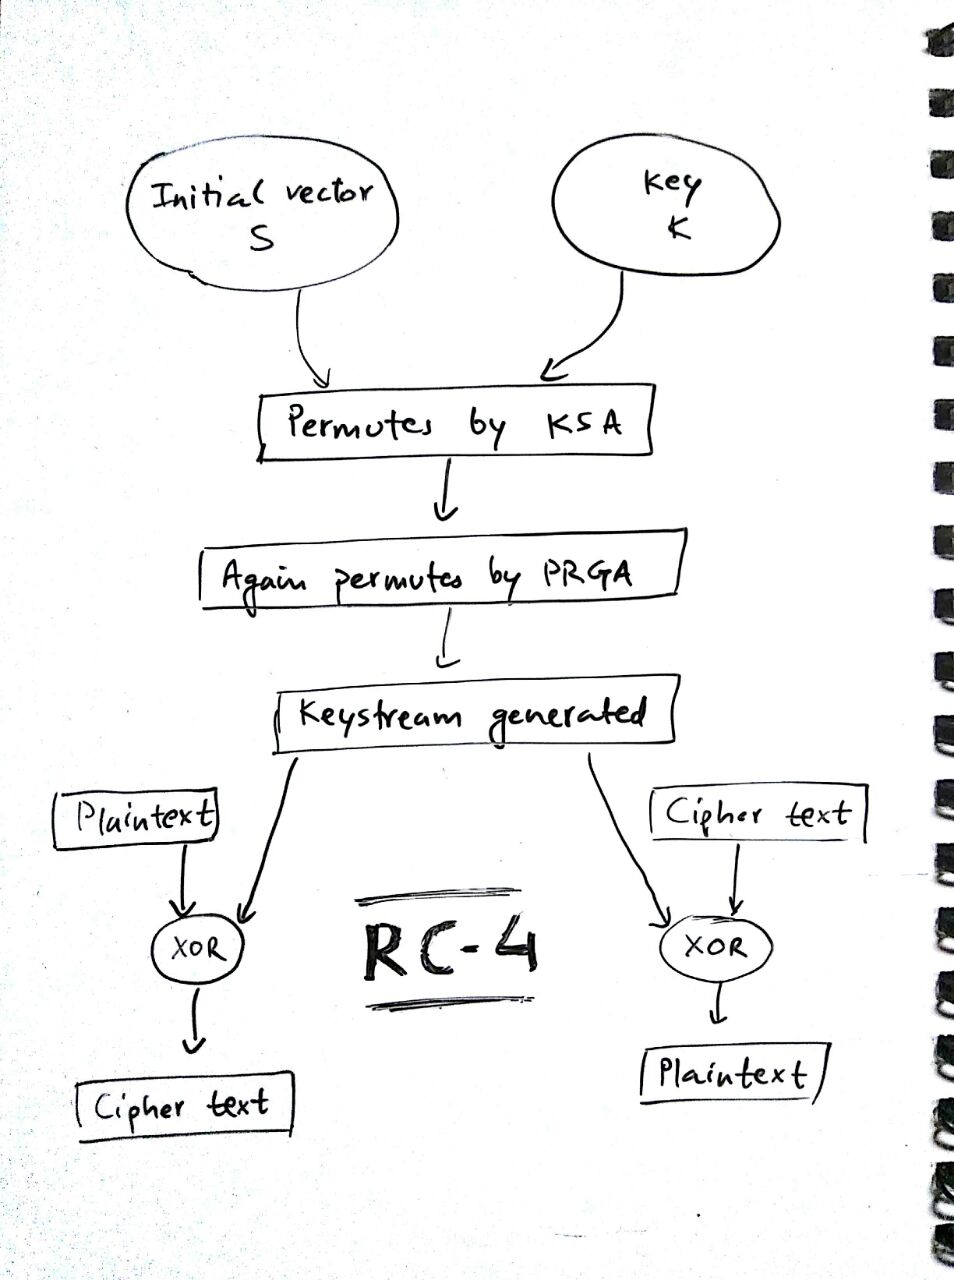 Initial vector
S
Key
K
Permutes by KSA
Again permutes by PRGA
Keystream generated
Plaintext
Cipher text
XOR
RC-4
XOR
Cipher text
Plaintext